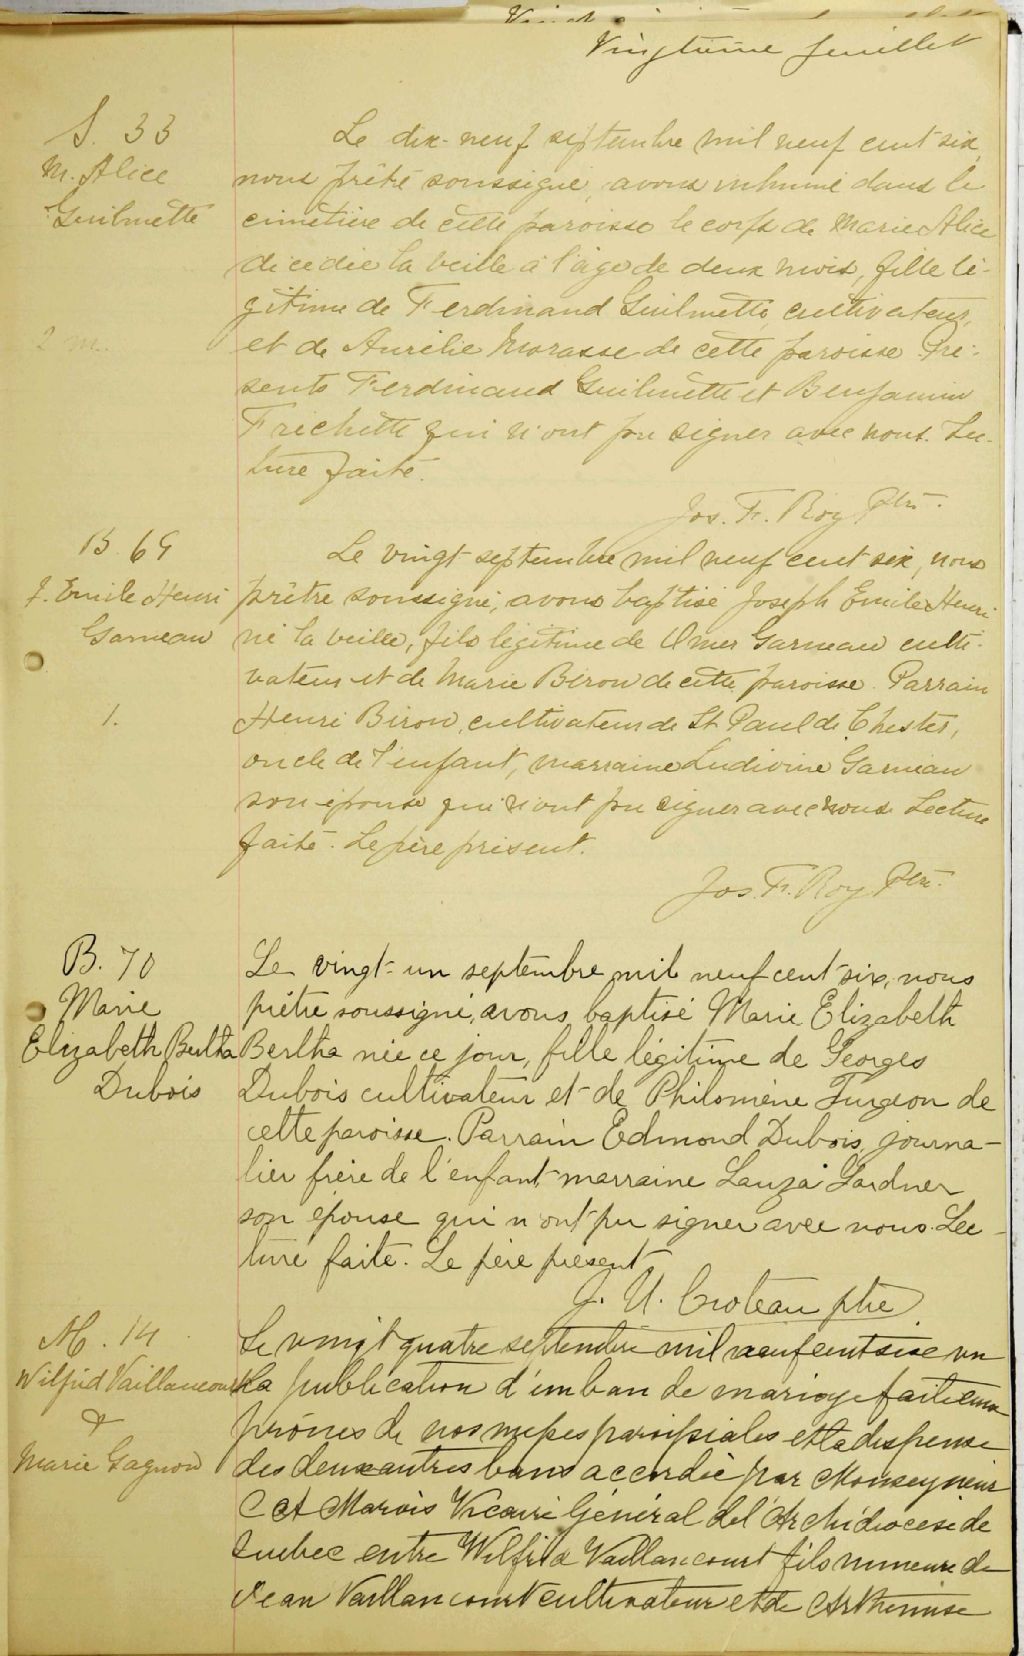 Vingtième feuillet
S. 33
M. Alice
Guilmette
2 m.
Le dix-neuf septembre mil neuf cent six,
nous prêtre soussigné, avons inhumé dans le
cimetière de cette paroisse le corps de Marie Alice
décédée la veille à l'âge de deux mois, fille lé-
gitime de Ferdinand Guilmette, cultivateur,
et de Aurélie Morasse de cette paroisse. Pré-
sents Ferdinand Guilmette et Benjamin
Frichette qui n'ont pu signer avec nous. Lec-
ture faite.
Jos. F. Roy Ptre.
B. 69
J. Emile Henri
Garneau
1.
Le vingt septembre mil neuf cent six, nous
prêtre soussigné, avons baptisé Joseph Emile Henri
né la veille, fils légitime de Omer Garneau culti-
vateur et de Marie Biron de cette paroisse. Parrain
Henri Biron, cultivateur de St Paul de Chester,
oncle de l'enfant, marraine Ludivine Garneau
son épouse qui n'ont pu signer avec nous. Lecture
faite. Le père présent.
Jos. F. Roy Ptre.
B. 70
Marie
Elizabeth Bertha
Dubois
Le vingt-un septembre mil neuf cent six, nous
prêtre soussigné, avons baptisé Marie Elizabeth
Bertha née ce jour, fille légitime de Georges
Dubois cultivateur et de Philomène Turgeon de
cette paroisse. Parrain Edmond Dubois, journa-
lier frère de l'enfant, marraine Lauza Gardner
son épouse qui n'ont pu signer avec nous. Lec-
ture faite. Le père présent
J. U. Croteau ptre
M. 14
Wilfrid Vaillancourt
&
Marie Gagnon
Le vingt quatre septembre mil neuf cent six vu
la publication d'un ban de mariage faite aux
prônes de nos messes paroissiales et la dispense
des deux autres bans accordée par Monseigneur
C A Marois Vicaire Général de l'Archidiocèse de
Quebec entre Wilfrid Vaillancourt fils mineur de
Jean Vaillancourt cultivateur et de Arthémise